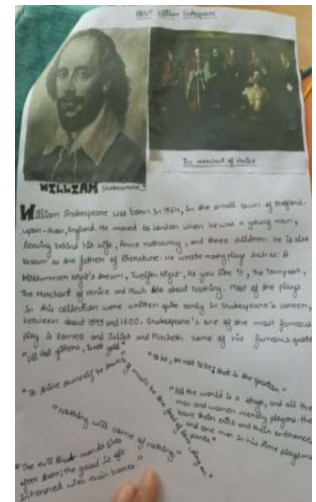 ABOUT William Shakespeare
The merchant of Venice
WILLIAM Shakespeare
William Shakespeare was born in 1564, in the small town of
upon-Avon, England. He moved to London when he was a young man,
leaving behind his wife, Anne Hathaway, and three children. He is also
known as the father of literature. He wrote many plays such as: A
Midsummer Night's dream, Twelfth Night, As you like It, The Tempest,
The Merchant of Venice and Much Ado about Nothing. Most of the plays
in this collection were written quite early in Shakespeare's career,
between about 1593 and 1600. Shakespeare's one of the most famous
play is Romeo and Juliet and Macbeth. Some of his famous quote
"All that glitters, is not gold"
"To be, or not to be; that is the question"
"To thine ownself be true"
"If music be the food of love, play on."
"All the world is a stage, and all the
men and women merely players: they
have their exits and their entrances;
and one man in his time plays many
parts"
"Nothing will come of nothing"
"The evil that men do lives
after them; the good is oft
interred with their bones."